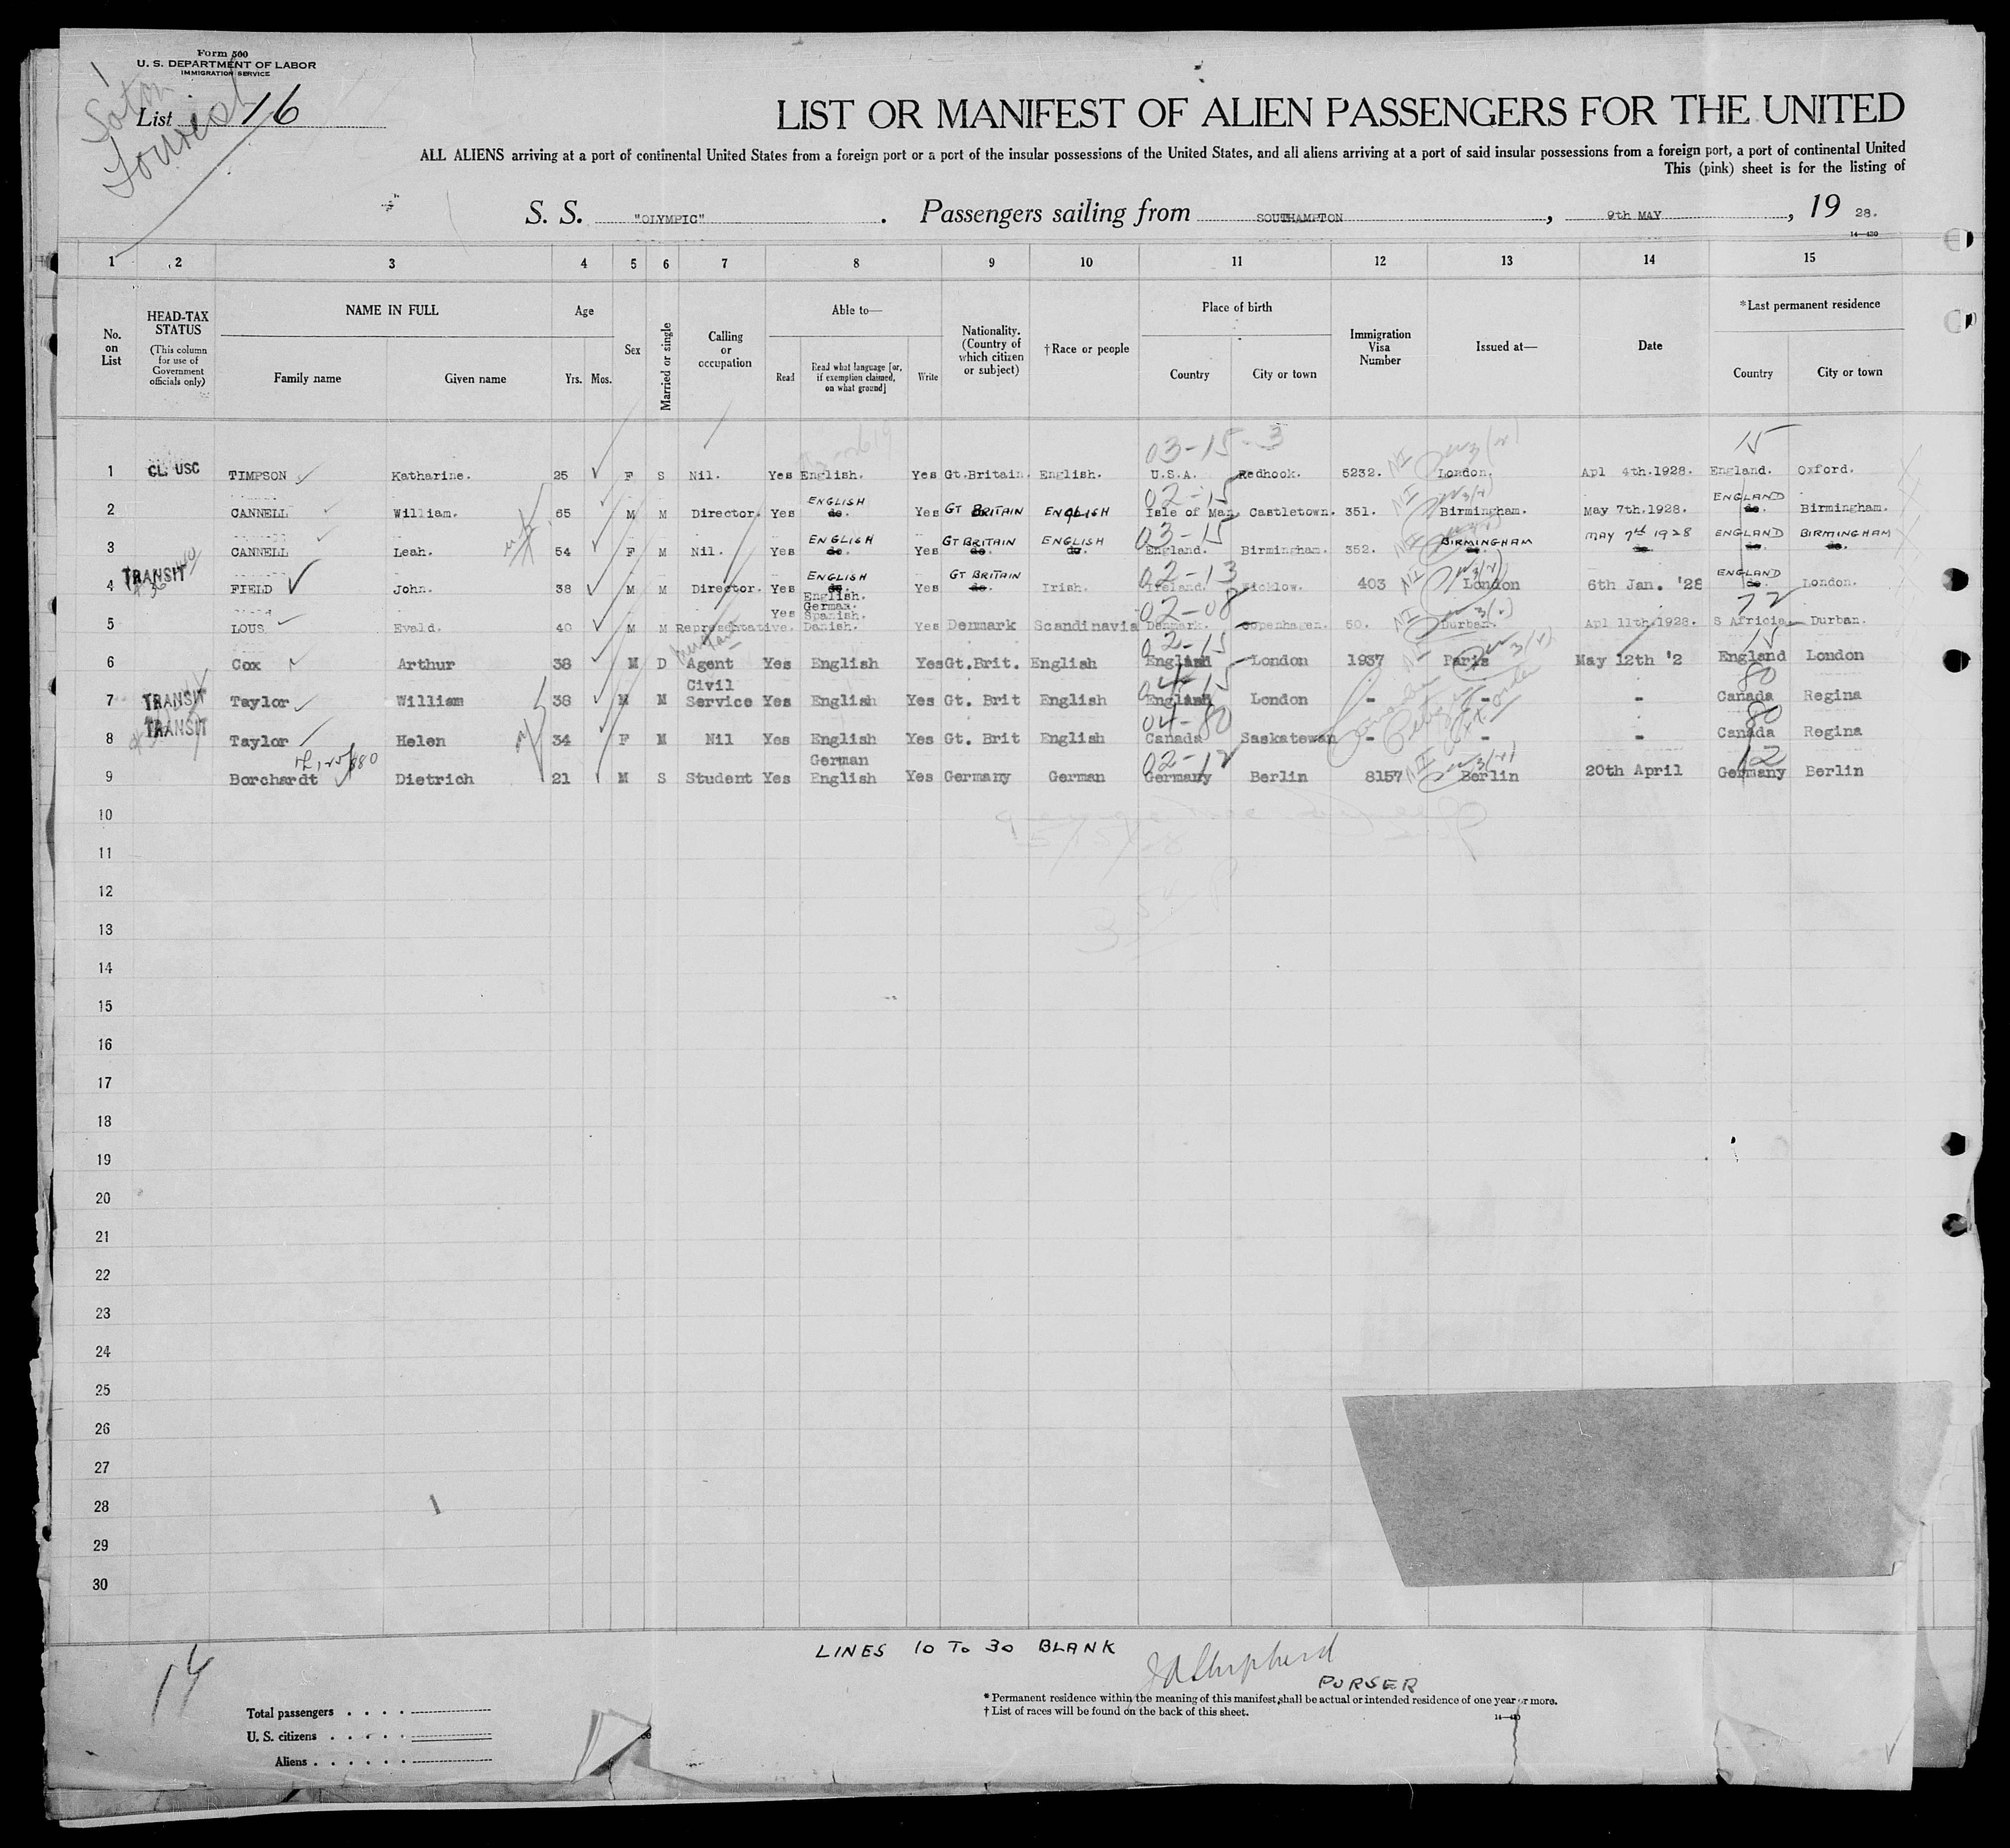 Form 500
U. S. DEPARTMENT OF LABOR
IMMIGRATION SERVICE
List 16
LIST OR MANIFEST OF ALIEN PASSENGERS FOR THE UNITED
ALL ALIENS arriving at a port of continental United States from a foreign port or a port of the insular possessions of the United States, and all aliens arriving at a port of said insular possessions from a foreign port, a port of continental United
This (pink) sheet is for the listing of
S. S. "OLYMPIC". Passengers sailing from SOUTHAMPTON, 9th MAY, 19 28.
14—430
1 2 3 4 5 6 7 8 9 10 11 12 13 14 15
No. on List
HEAD-TAX STATUS
(This column for use of Government officials only)
NAME IN FULL
Family name Given name
Age
Yrs. Mos.
Sex
Married or single
Calling or occupation
Able to—
Read Read what language [or, if exemption claimed, on what ground] Write
Nationality. (Country of which citizen or subject)
† Race or people
Place of birth
Country City or town
Immigration Visa Number
Issued at—
Date
*Last permanent residence
Country City or town
03-15-3 15
1 CL. USC TIMPSON Katharine. 25 F S Nil. Yes English. Yes Gt.Britain. English. U.S.A. Redhook. 5232. NI London. Apl 4th.1928. England. Oxford.
02-15
ENGLISH ENGLAND
2 CANNELL William. 65 M M Director. Yes do. Yes GT BRITAIN ENGLISH Isle of Man. Castletown. 351. NI Birmingham. May 7th.1928. do. Birmingham.
03-15
ENGLISH GT BRITAIN ENGLISH BIRMINGHAM MAY 7th 1928 ENGLAND BIRMINGHAM
3 CANNELL Leah. 54 F M Nil. Yes do. Yes do. do. England. Birmingham. 352. NI do. do. do. do.
02-13
ENGLISH GT BRITAIN ENGLAND
4 TRANSIT FIELD John. 38 M M Director. Yes do. Yes do. Irish. Ireland. Wicklow. 403 NI London 6th Jan. '28 do. London.
02-08 72
English.
German.
Spanish.
5 LOUS Evald. 40 M M Representative. Yes Danish. Yes Denmark Scandinavia Denmark. Copenhagen. 50. NI Durban. Apl 11th.1928. S Africia Durban.
02-15 15
6 Cox Arthur 38 M D Agent Yes English Yes Gt.Brit. English England London 1937 Paris May 12th '2 England London
04-15 80
7 TRANSIT Taylor William 38 M M Civil Service Yes English Yes Gt. Brit English England London - - - Canada Regina
04-80 80
8 TRANSIT Taylor Helen 34 F M Nil Yes English Yes Gt. Brit English Canada Saskatewan - - - Canada Regina
02-12 12
German
9 Borchardt Dietrich 21 M S Student Yes English Yes Germany German Germany Berlin 8157 NI Berlin 20th April Germany Berlin
10
11
12
13
14
15
16
17
18
19
20
21
22
23
24
25
26
27
28
29
30
LINES 10 TO 30 BLANK
JA Shepherd
PURSER
14
Total passengers
U. S. citizens
Aliens
* Permanent residence within the meaning of this manifest shall be actual or intended residence of one year or more.
† List of races will be found on the back of this sheet.
14—430